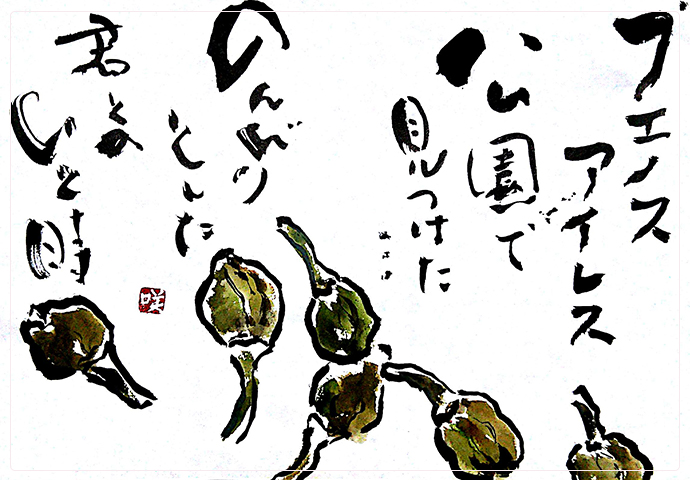 フエノス
アイレス
公園で
見つけた
のんびり
とした
君との
ひと時
咲